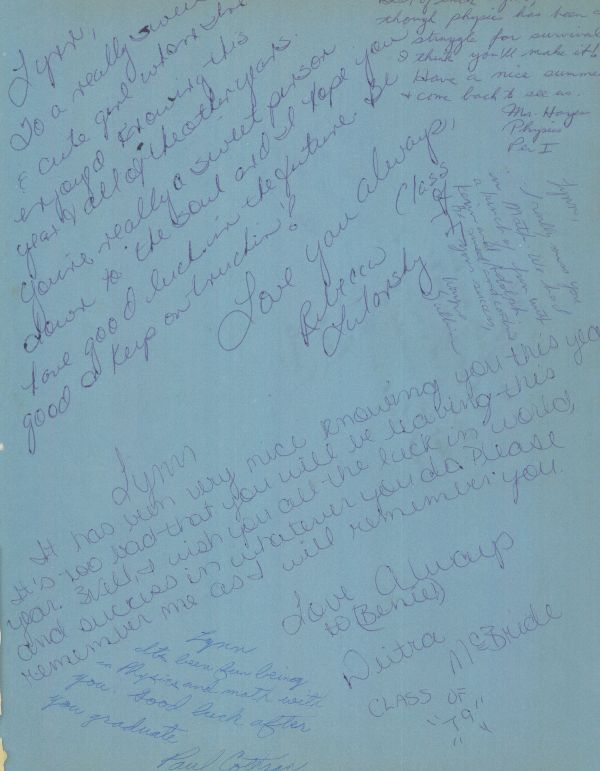 Lynn,
To a really sweet
& cute girl whom I've
enjoyed knowing this
year & all of the other years.
You're really a sweet person
down to the soul and I hope you
have good luck in the future. Be
good & Keep on truckin'!
Love you always,
Rebecca
Class
of
though physics has been a
struggle for survival
I think you'll make it!
Have a nice summer
& come back to see us.
Mrs.
Physics
Per I
Lynn,
miss you
in Math. We had
a bunch of fun with
Lynn
It has been very nice knowing you this year
It's too bad that you will be leaving this
year. Still, I wish you all the luck in world,
and success in whatever you do. Please
remember me as I will remember you.
Love Always
to (Bernie)
Deitra
McBride
CLASS OF
"79"
Lynn
Its been fun being
in Physics and math with
you. Good luck after
you graduate
Paul